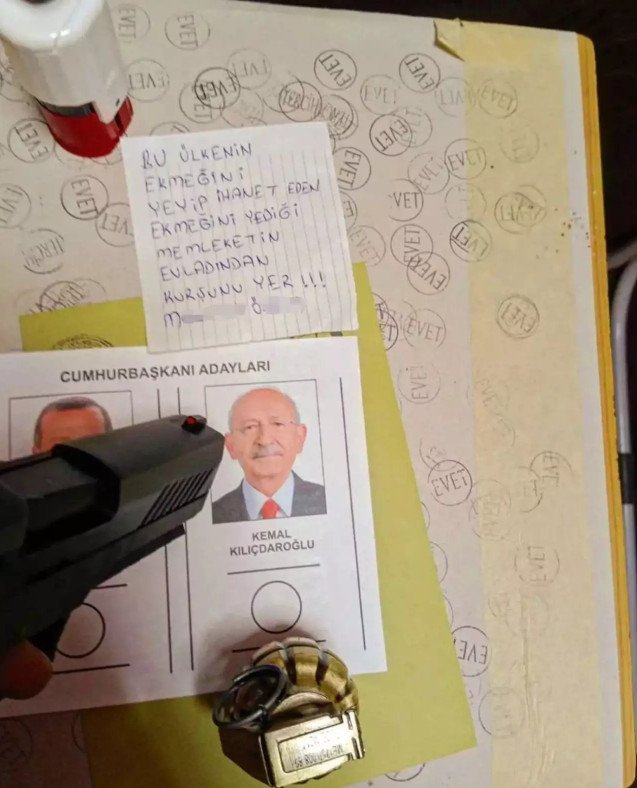 BU ÜLKENİN
EKMEĞİNİ
YEYİP İHANET EDEN
EKMEĞİNİ YEDİĞİ
MEMLEKETİN
EVLADINDAN
KURŞUNU YER !!!
M Ö
CUMHURBAŞKANI ADAYLARI
KEMAL
KILIÇDAROĞLU
EVET
EVET
EVET
EVET
EVET
EVET
EVET
EVET
EVET
EVET
EVET
VET
EVET
EVET
EVET
EVET
EVET
EVET
EVET
EVET
EVET
EVET